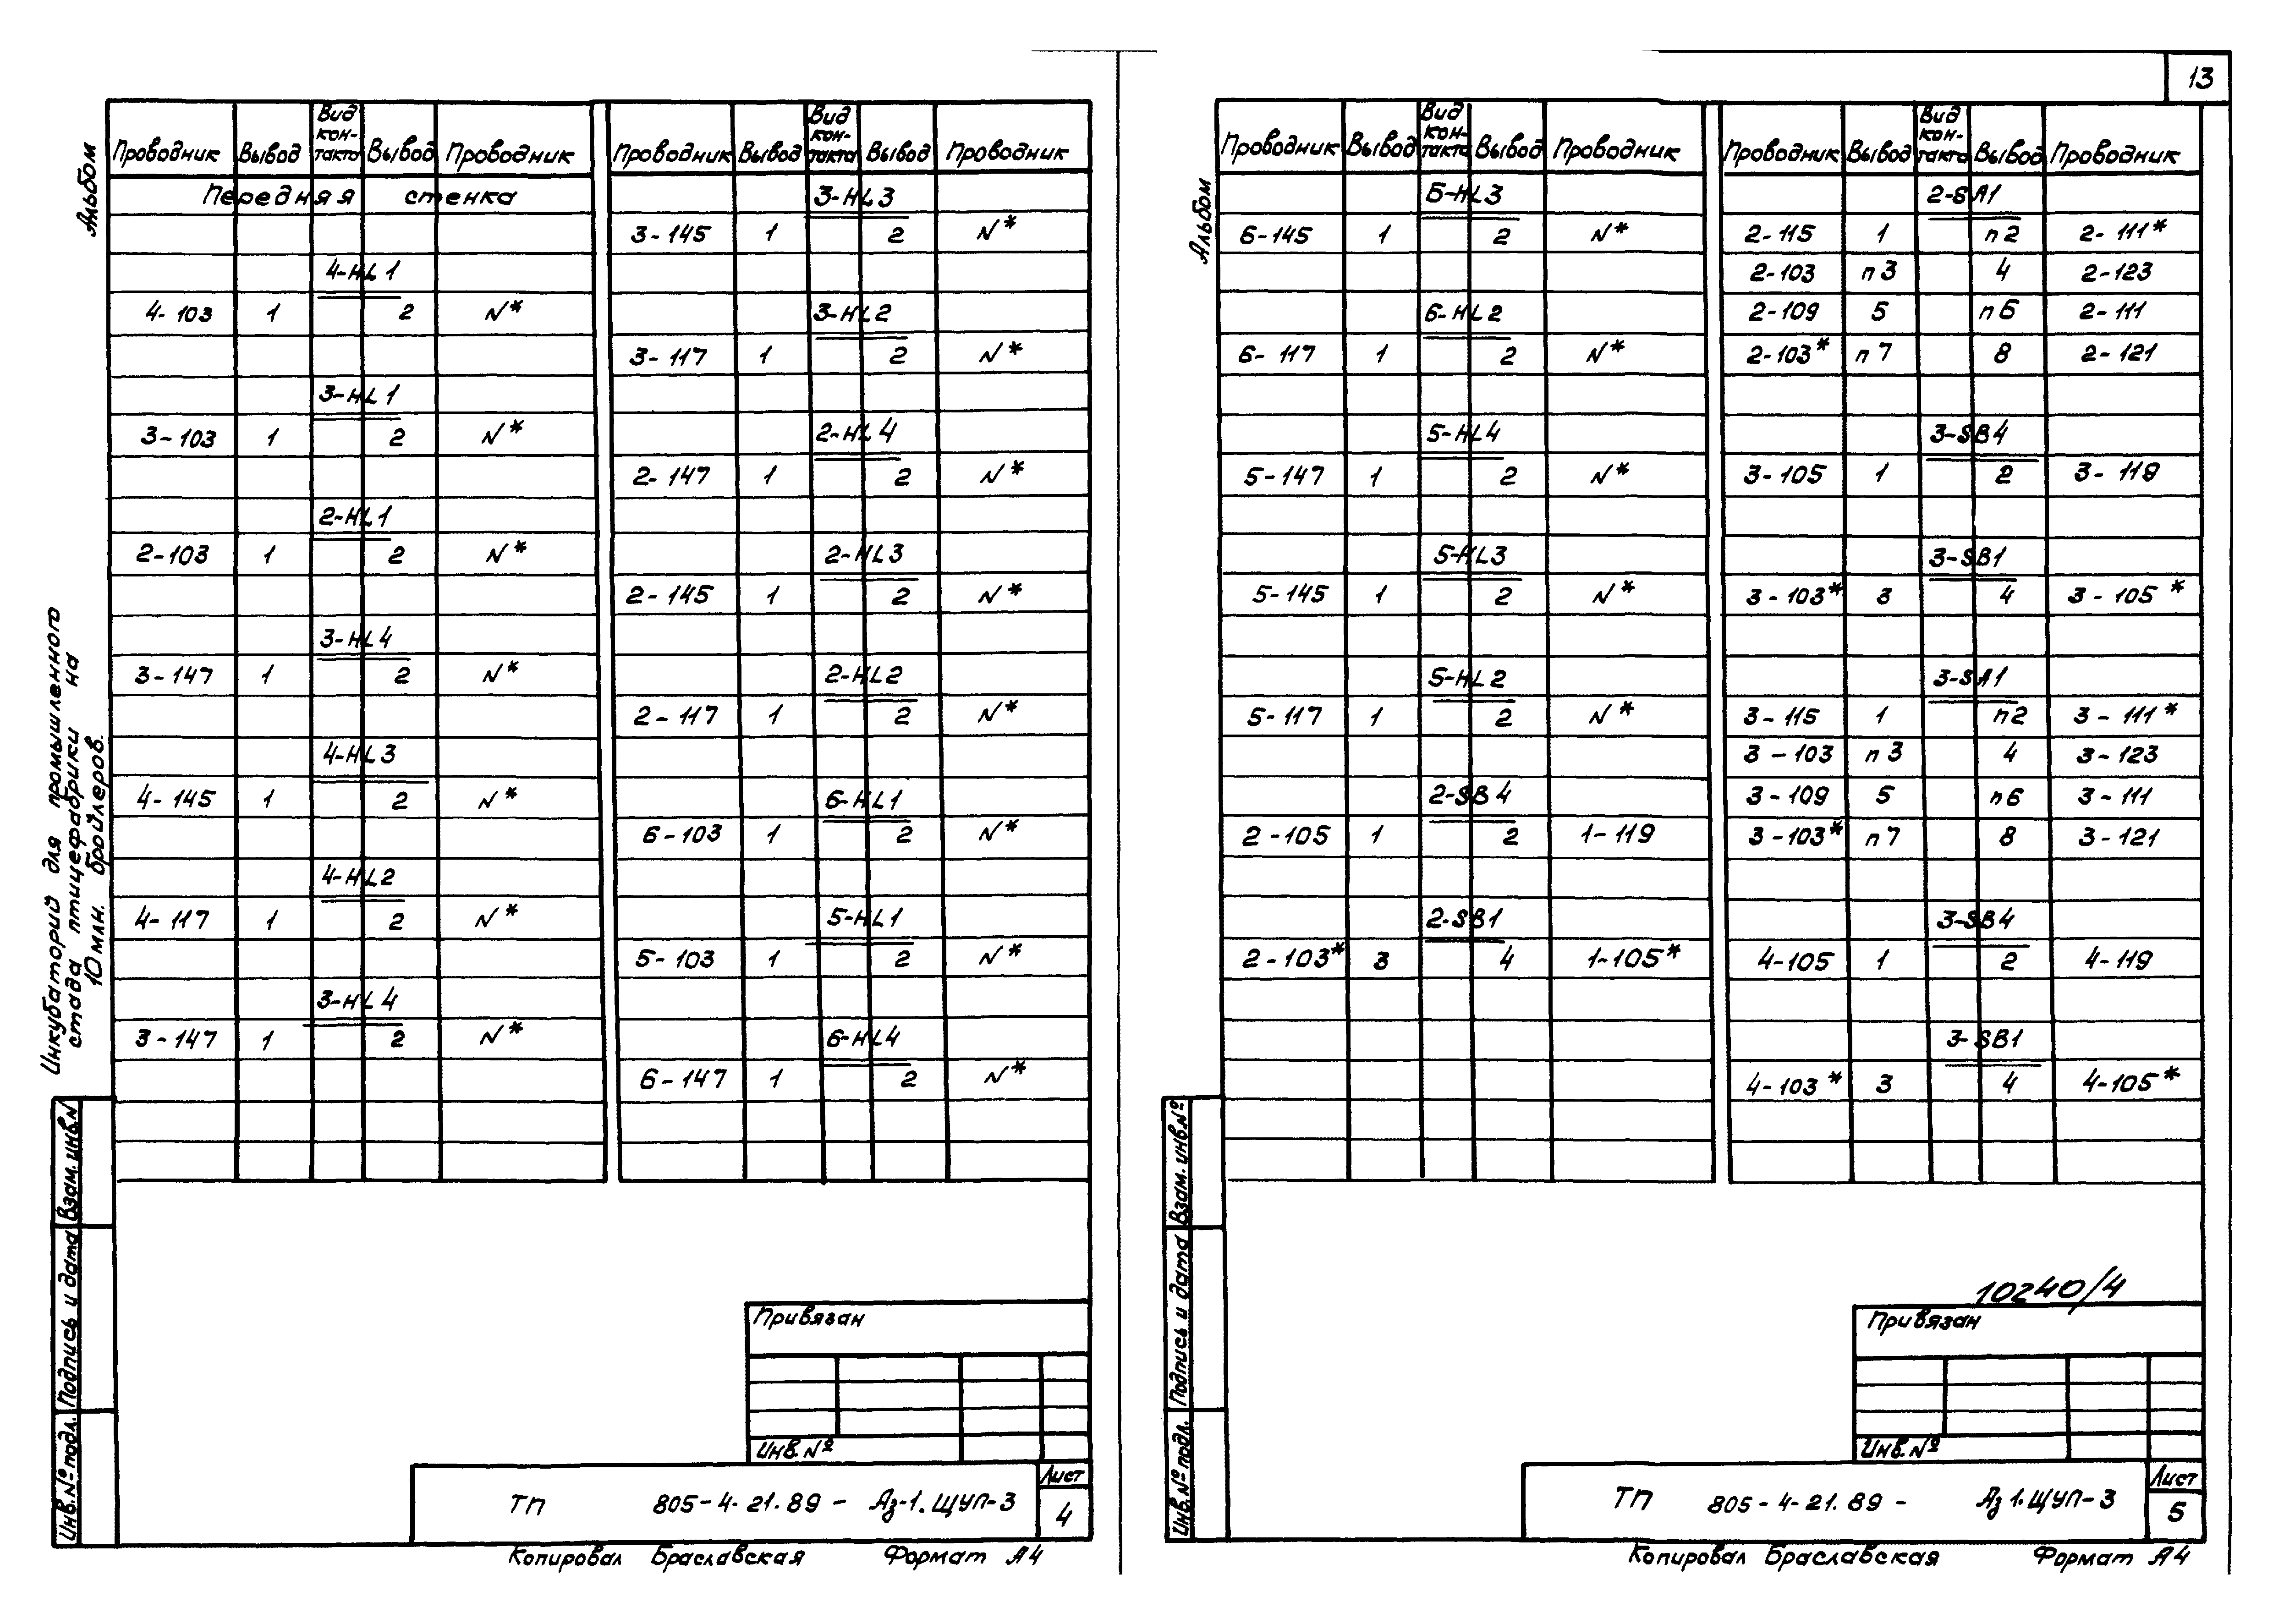 13
Альбом
Инкубаторий для промышленного
стада птицефабрики на
10 млн. бройлеров.
Проводник Вывод Вид кон-такта Вывод Проводник
Передняя стенка
4-HL1
4-103 1 2 N*
3-HL1
3-103 1 2 N*
2-HL1
2-103 1 2 N*
3-HL4
3-147 1 2 N*
4-HL3
4-145 1 2 N*
4-HL2
4-117 1 2 N*
3-HL4
3-147 1 2 N*
Проводник Вывод Вид кон-такта Вывод Проводник
3-HL3
3-145 1 2 N*
3-HL2
3-117 1 2 N*
2-HL4
2-147 1 2 N*
2-HL3
2-145 1 2 N*
2-HL2
2-117 1 2 N*
6-HL1
6-103 1 2 N*
5-HL1
5-103 1 2 N*
6-HL4
6-147 1 2 N*
Взам. инв.№
Подпись и дата
Инв.№ подл.
Привязан
Инв.№
ТП 805-4-21.89- Аз-1.ЩУП-3
Лист
4
Копировал Браславская Формат А4
Альбом
Проводник Вывод Вид кон-такта Вывод Проводник
Б-HL3
6-145 1 2 N*
6-HL2
6-117 1 2 N*
5-HL4
5-147 1 2 N*
5-HL3
5-145 1 2 N*
5-HL2
5-117 1 2 N*
2-SB4
2-105 1 2 1-119
2-SB1
2-103* 3 4 1-105*
Проводник Вывод Вид кон-такта Вывод Проводник
2-SA1
2-115 1 п2 2-111*
2-103 п3 4 2-123
2-109 5 п6 2-111
2-103* п7 8 2-121
3-SB4
3-105 1 2 3-119
3-SB1
3-103* 3 4 3-105*
3-SA1
3-115 1 п2 3-111*
3-103 п3 4 3-123
3-109 5 п6 3-111
3-103* п7 8 3-121
3-SB4
4-105 1 2 4-119
3-SB1
4-103* 3 4 4-105*
Взам. инв.№
Подпись и дата
Инв.№ подл.
10240/4
Привязан
Инв.№
ТП 805-4-21.89- Аз1.ЩУП-3
Лист
5
Копировал Браславская Формат А4